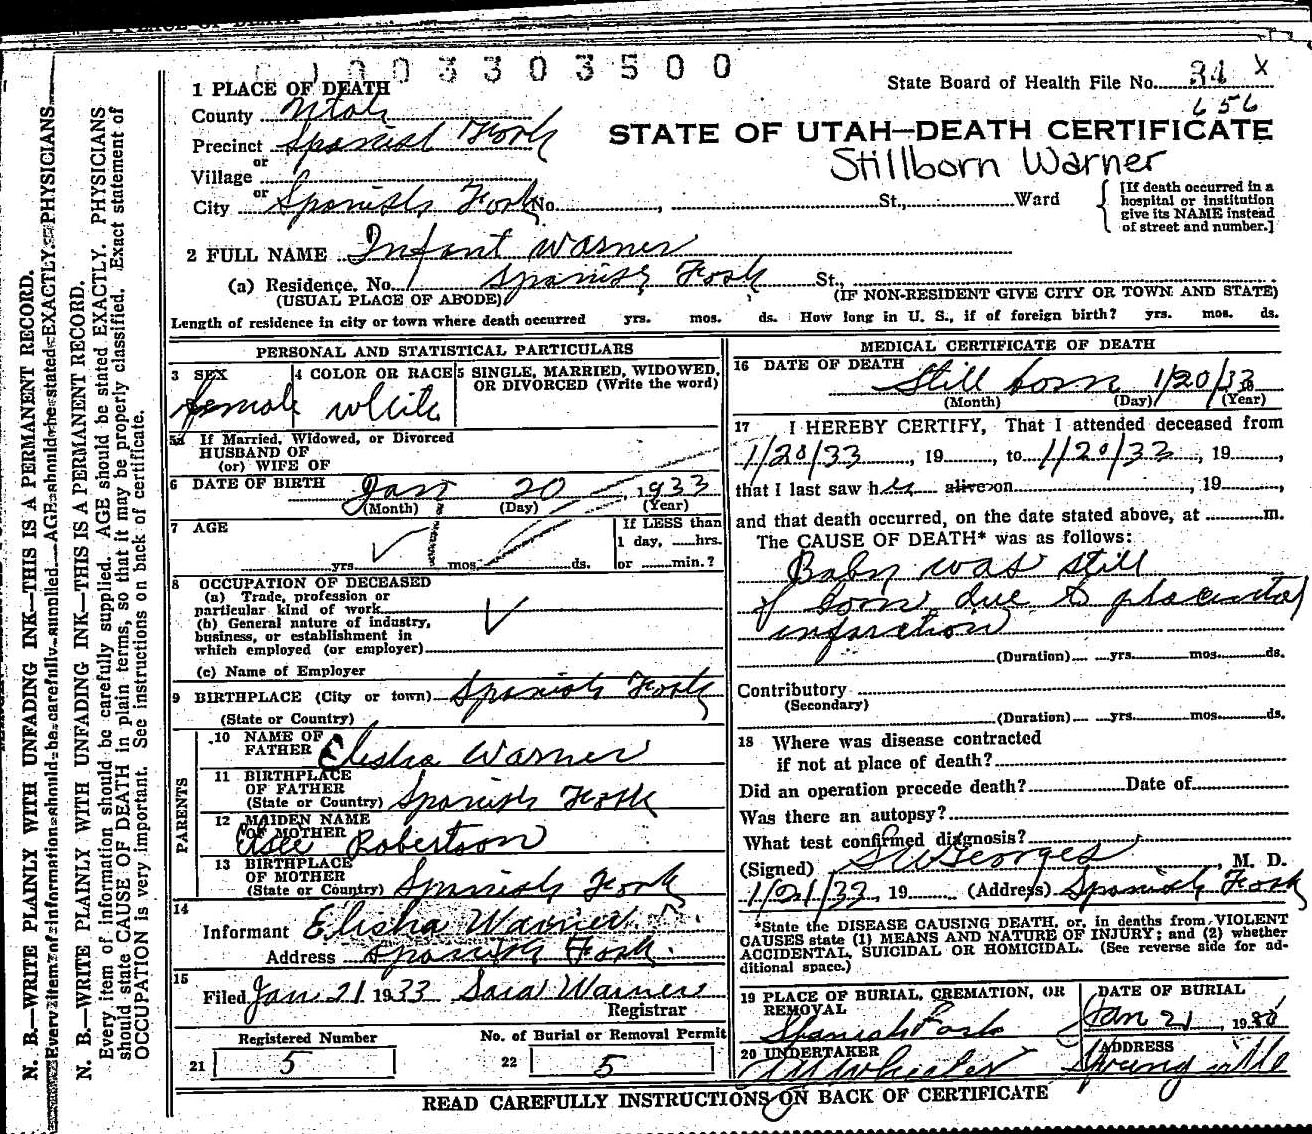 0 0 3 3 0 3 5 0 0
State Board of Health File No. 34 X
656
1 PLACE OF DEATH
County Utah
Precinct Spanish Fork
or
Village
or
City Spanish Fork No. , St., Ward
STATE OF UTAH—DEATH CERTIFICATE
Stillborn Warner
[If death occurred in a
hospital or institution
give its NAME instead
of street and number.]
2 FULL NAME Infant Warner
(a) Residence. No. Spanish Fork St.,
(USUAL PLACE OF ABODE) (IF NON-RESIDENT GIVE CITY OR TOWN AND STATE)
Length of residence in city or town where death occurred yrs. mos. ds. How long in U. S., if of foreign birth? yrs. mos. ds.
PERSONAL AND STATISTICAL PARTICULARS
3 SEX
female
4 COLOR OR RACE
white
5 SINGLE, MARRIED, WIDOWED,
OR DIVORCED (Write the word)
5a If Married, Widowed, or Divorced
HUSBAND OF
(or) WIFE OF
6 DATE OF BIRTH Jan 20, 1933
(Month) (Day) (Year)
7 AGE
yrs. mos. ds.
If LESS than
1 day, hrs.
or min.?
8 OCCUPATION OF DECEASED
(a) Trade, profession or
particular kind of work
(b) General nature of industry,
business, or establishment in
which employed (or employer)
(c) Name of Employer
9 BIRTHPLACE (City or town) Spanish Fork
(State or Country)
PARENTS
10 NAME OF
FATHER Elisha Warner
11 BIRTHPLACE
OF FATHER
(State or Country) Spanish Fork
12 MAIDEN NAME
OF MOTHER
Robertson
13 BIRTHPLACE
OF MOTHER
(State or Country) Spanish Fork
14
Informant Elisha Warner
Address Spanish Fork
15
Filed Jan 21 1933 Sara Warner
Registrar
Registered Number
21 5
No. of Burial or Removal Permit
22 5
MEDICAL CERTIFICATE OF DEATH
16 DATE OF DEATH
Still born 1/20/33
(Month) (Day) (Year)
17 I HEREBY CERTIFY, That I attended deceased from
1/20/33, 19 , to 1/20/33, 19 ,
that I last saw her alive on , 19 ,
and that death occurred, on the date stated above, at m.
The CAUSE OF DEATH* was as follows:
Baby was still
born due to placental
infarction
(Duration) yrs. mos. ds.
Contributory
(Secondary)
(Duration) yrs. mos. ds.
18 Where was disease contracted
if not at place of death?
Did an operation precede death? Date of
Was there an autopsy?
What test confirmed diagnosis?
(Signed) Georges, M. D.
1/21/33, 19 (Address) Spanish Fork
*State the DISEASE CAUSING DEATH, or, in deaths from VIOLENT
CAUSES state (1) MEANS AND NATURE OF INJURY; and (2) whether
ACCIDENTAL, SUICIDAL OR HOMICIDAL. (See reverse side for ad-
ditional space.)
19 PLACE OF BURIAL, CREMATION, OR
REMOVAL
Spanish Fork
DATE OF BURIAL
Jan 21, 19
20 UNDERTAKER
Wheeler
ADDRESS
Springville
READ CAREFULLY INSTRUCTIONS ON BACK OF CERTIFICATE
N. B.—WRITE PLAINLY WITH UNFADING INK—THIS IS A PERMANENT RECORD.
Every item of information should be carefully supplied. AGE should be stated EXACTLY. PHYSICIANS
N. B.—WRITE PLAINLY WITH UNFADING INK—THIS IS A PERMANENT RECORD.
Every item of information should be carefully supplied. AGE should be stated EXACTLY. PHYSICIANS
should state CAUSE OF DEATH in plain terms, so that it may be properly classified. Exact statement of
OCCUPATION is very important. See instructions on back of certificate.